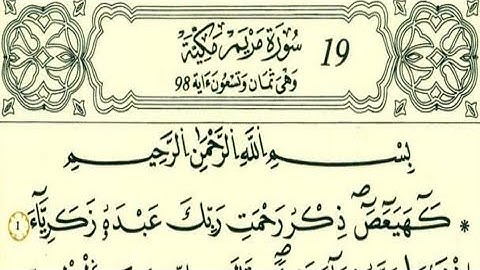 سُورَةُ مَرْيَمَ مَكِّيَّةٌ 19
وَهْيَ ثَمَانٌ وَتِسْعُونَ ءَايَةً 98
بِسْمِ اللَّهِ الرَّحْمَنِ الرَّحِيمِ
* كَهَيَعَصَ ذِكْرُ رَحْمَتِ رَبِّكَ عَبْدَهُ زَكَرِيَّاءَ 1